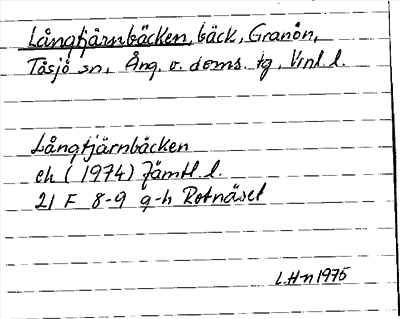 Långtjärnbäcken, bäck, Granön,
Tåsjö sn, Ång. v. doms. tg, Vrnl. l.
Långtjärnbäcken
ek (1974) Jämtl. l.
21 F 8-9 g-h Rotnäset
L.H-n 1975